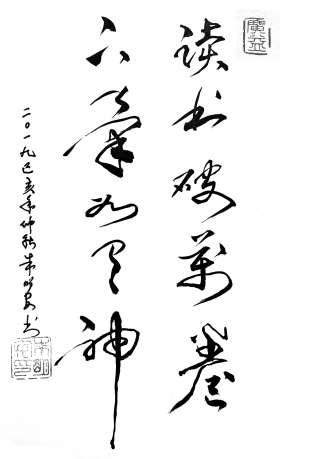 读书破万卷
下笔如有神
二〇一九己亥年仲秋朱明安书